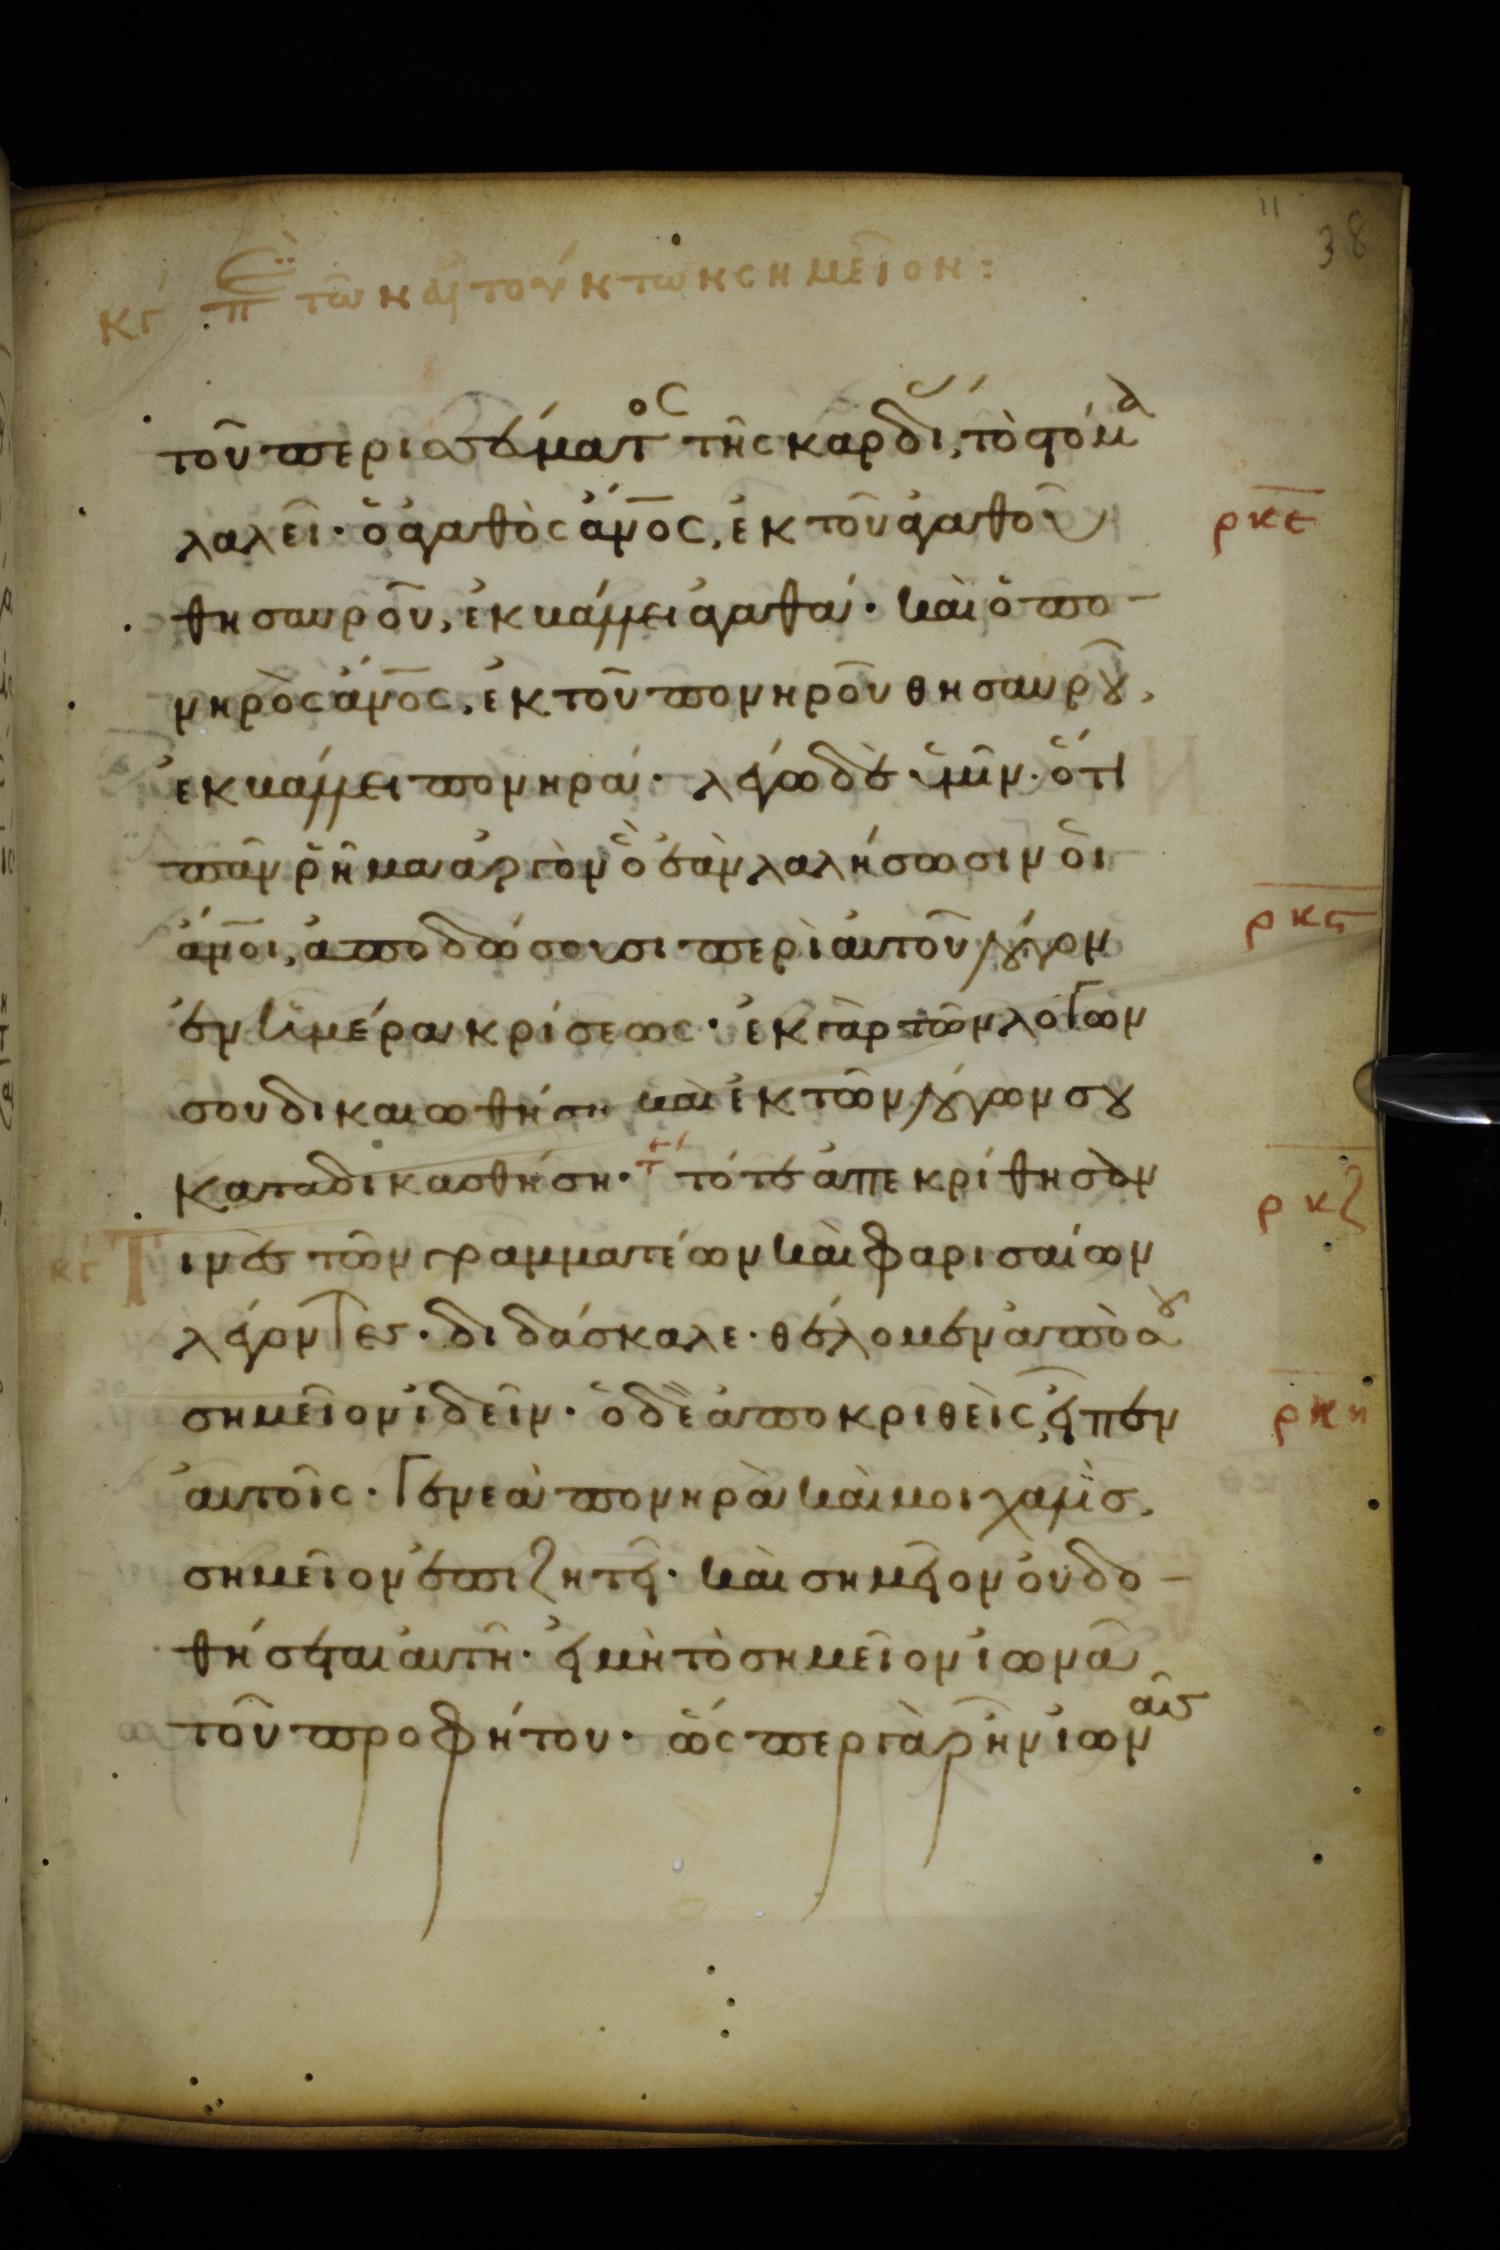 38
κγ Περὶ τῶν αἰτούντων σημεῖον:
τοῦ περισσεύματος τῆς καρδί, τὸ στόμα
λαλεῖ· ὁ ἀγαθὸς ἄνος, ἐκ τοῦ ἀγαθοῦ
ρκε
θησαυροῦ, ἐκβάλλει ἀγαθά· καὶ ὁ πο-
νηρὸς ἄνος, ἐκ τοῦ πονηροῦ θησαυροῦ,
ἐκβάλλει πονηρά· λέγω δὲ ὑμῖν· ὅτι
πᾶν ῥῆμα ἀργὸν ὃ ἐὰν λαλήσωσιν οἱ
ἄνοι, ἀποδώσουσι περὶ αὐτοῦ λόγον
ρκϛ
ἐν ἡμέρα κρίσεως· ἐκ γὰρ τῶν λόγων
σου δικαιωθήση καὶ ἐκ τῶν λόγων σου
καταδικασθήση· τότε ἀπεκρίθησάν
ρκζ
κγ Τινες τῶν γραμματέων καὶ φαρισαίων
λέγοντες· διδάσκαλε· θέλομεν ἀπὸ σοῦ
σημεῖον ἰδεῖν· ὁ δὲ ἀποκριθεὶς, εἶπεν
ρκη
αὐτοῖς· Γενεὰ πονηρὰ καὶ μοιχαλὶς,
σημεῖον ἐπιζητεῖ· καὶ σημεῖον οὐ δο-
θήσεται αὐτῆ· εἰ μὴ τὸ σημεῖον ἰωνᾶ
τοῦ προφήτου· ὥσπερ γὰρ ἦν ἰωνᾶς